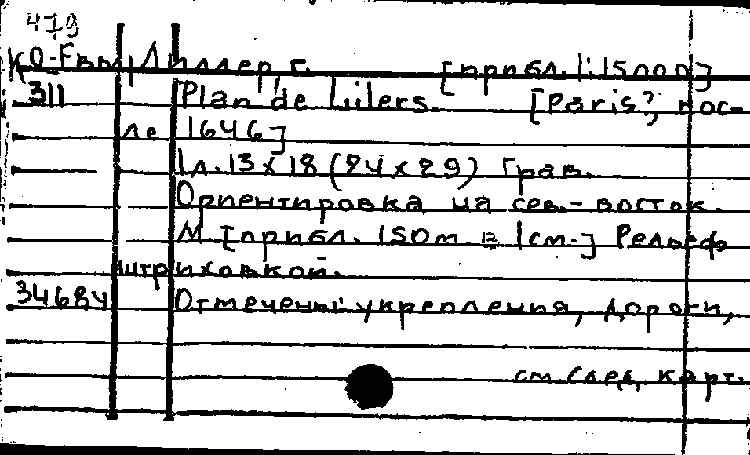 479
КО-Fвв/ Лиллер, г. [прибл. 1:15000]
311 Plan de Lillers. [Paris?, пос-
ле 1646]
1 л. 13 x 18 (24 x 29) Грав.
Ориентировка на сев.-восток.
М. [прибл. 150m в 1см.] Рельеф
штриховкой.
34684 Отмечены укрепления, дороги,
см. след. карт.